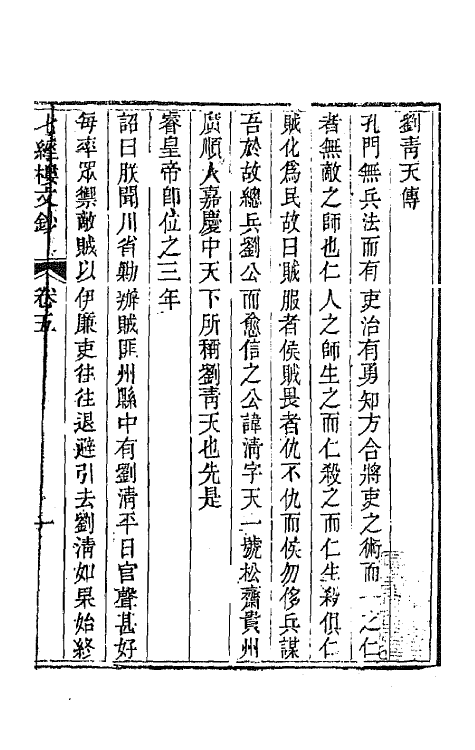 劉青天傳
孔門無兵法而有吏治有勇知方合將吏之術而一之仁
者無敵之師也仁人之師生之而仁殺之而仁生殺俱仁
賊化為民故曰賊服者侯賊畏者仇不仇而侯勿侈兵謀
吾於故總兵劉公而愈信之公諱清字天一號松齋貴州
廣順人嘉慶中天下所稱劉青天也先是
睿皇帝即位之三年
詔曰朕聞川省勦辦賊匪州縣中有劉清平日官聲甚好
每率眾禦敵賊以伊廉吏往往退避引去劉清如果始終
七經樓文鈔 卷五